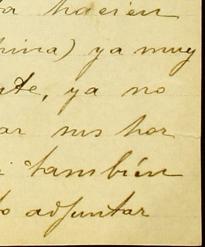 ta hacien
hina) ya muy
nte, ya no
ar nos hor
i también
to adjuntar